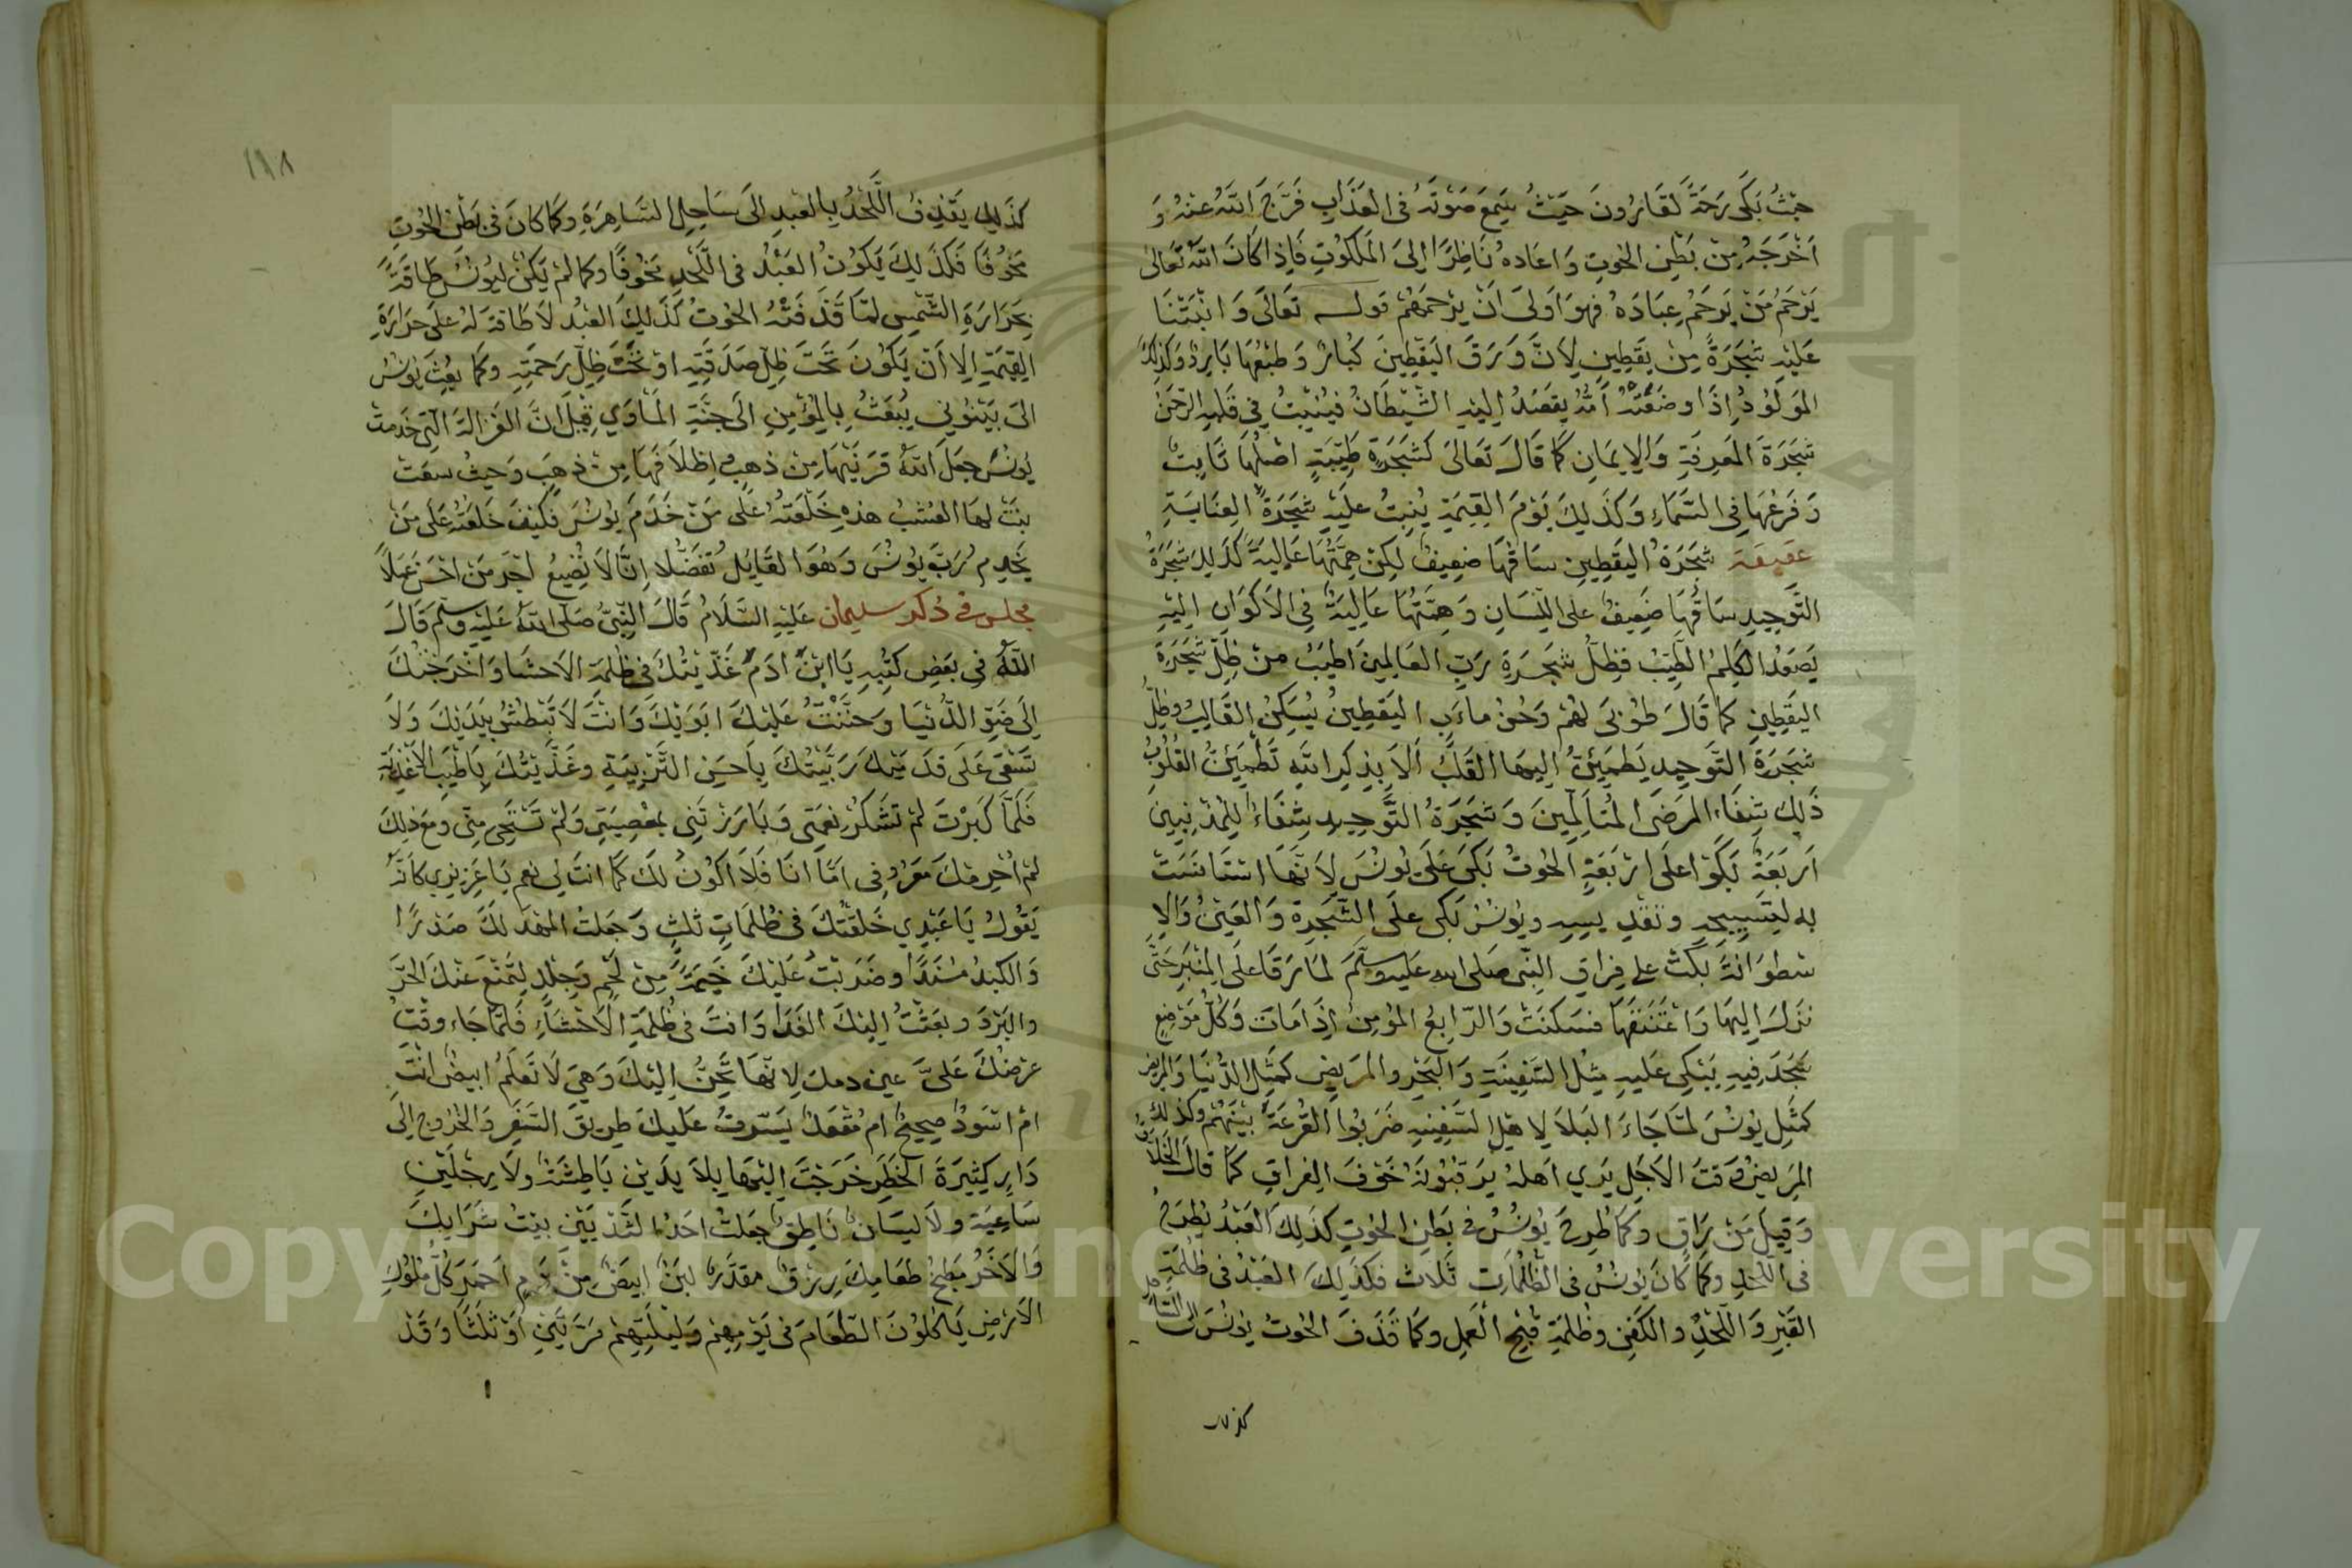 حيْثُ بَكَى رَحمَةً لقَارُونَ حَيْثُ سَمِعَ صَوْتَهُ فى العَذَابِ فَرَّجَ اللَّهُ عنهُ وَ
اَخْرَجَهُ مِنْ بَطْنِ الحُوتِ وَاعَادهُ نَاظِرًا اِلىَ المَلَكُوْتِ فَاِذا كَانَ اللّٰهُ تَعَالىٰ
يَرْحَمُ مَنْ يَرحَمُ عِبَادَهُ فهوَ اَولىَ اَنْ يرْحمَهُمْ قولـه تعَالَى وَ انْبَتْنَا
عَليْهِ شَجَرَةً مِنْ يَقطِينٍ لِاَنَّ وَرَقَ اليَقْطِينَ كُبارٌ وَطبْعُهَا بَارِدٌ وَكذٰلِكَ
المَولُودُ اِذَا وضَعَتْهُ اُمُّهُ يقصَدُ اِليْهِ الشَّيْطَانُ فيُنْبِتُ فِي قَلبِهِ الرَّحمٰنُ
شَجَرَةَ المَعرِفَةِ وَالاِيمَانِ كَمَا قَالَ تَعَالىَ كَشَجَرَةٍ طَيِّبَةٍ اصْلُهَا ثَابِتٌ
وَفَرْعُهَا فِى السَّمَاءِ وَكَذَلِكَ يَوْمَ القِيمَةِ يُنْبِتُ عليَهِ شَجَرَةً العِنَايَةِ
شَجَرَةُ اليَقطِينِ سَاقُهَا ضعِيفٌ لكِنْ هِمَّتُهَا عَالِيَةً كَذلِكَ شَجَرَةُ
التَّوحِيدِ سَاقُهَا ضَعِيفٌ على اللّسَانِ وَهِمَّتُهَا عَالِيَةٌ فِى الاَكْوَانِ اِليْهِ
يَصعَدُ الكَلِمُ الطَّيّبُ فظِلُّ شجَرَةِ رَبِّ العَالمِينَ اَطيَبُ مِنْ ظِلّ شَجَرَةِ
اليَقْطِينِ كَما قَالَ طُوْبىَ لهُمْ وَحُسْنُ ماءَبٍ اليَقطِينُ يُسَكِنُ القَالِبُ وظِلُّ
شجَرَةِ التَّوحِيدِ يَطمَئِنُّ اليهَا القَلبُ اَلَا بِذِكرِ اللّٰهِ تَطْمَئِنُّ القُلُوْبُ
ذَلِكَ شِفَاءُ المرضَى المُتَالِّمِينَ وَشجَرَةُ التَّوحِيدِ شِفَاءٌ لِلمُذْنِبِينَ
اَربَعَةٌ بَكَوْا عَلَى اَرْبَعَةٍ الحُوْتُ بَكَى عَلَى يُونُسَ لِاَنَّهَا اسْتَانَسَتْ
به لتسبيحهِ وتقدِيسِهِ ويُونُسُ بَكى علَى الشَّجَرةِ وَالعَيْنُ وَالا
سطوَانَةُ بَكَتْ على فِراقِ النَّبِى صَلى الله عَليه وسَلّمَ لمَا رَقَا علَى المِنْبَرِ حَتَّى
نزَلَ اِليْهَا وَاعْتَنَقَهَا فسَكنَتْ وَالرَّابِعُ المؤْمِنُ اِذَا مَاتَ وَكُلُّ مَوْضِعٍ
سَجَدَ فِيهِ يَبْكِى عَليهِ مِثْلُ السَّفِينَةِ وَالبَحْرِ والمَرِيضِ كَمَثلِ الدُّنيَا وَالمَرِيضُ
كمَثَلِ يُونُسَ لمَّا جَاءَ البَلَا لِاهلِ السَّفِينهِ ضَرَبُوا القُرْعَةَ بيْنَهُمْ وكذلكَ
المَرِيضُ وَقتَ الاَجَلِ يَرَي اَهلهُ يَرقبُوْنَهُ خَوْفَ الفِرَاقِ كمَا قَالَ الخَلَّاقُ
وَقِيلَ مَنْ رَاقٍ وَكَمَا طُرِحَ يُونُسُ فى بَطنِ الحُوْتِ كذَلِكَ العَبْدُ يُطْرَحُ
فى اللّحْدِ وكَمَا كَانَ يُونُسُ فى الظُّلُمَاتِ ثَلَاث فكَذَلِكَ العَبْدُ فى ظُلمَةِ
القَبْرِ وَاللَّحْدِ والكَفَنِ وظُلْمَةِ قُبْحِ العَملِ وكمَا قَذَفَ الحُوتُ يُوْنُسَ اِلى السَّاحل
كذلك
١٩٨
كَذَلِكَ يَقذِفُ اللَّحْدُ بِالعَبْدِ الَى سَاحِلِ السَّاهِرَةِ وكمَا كانَ فى بَطنِ الحُوتِ
محْوُفًا فكذَلكَ يَكوُنُ العَبْدُ فى اللَّحْدِ محَوُفًا وكما لمْ يَكنْ ليُونُسَ طَاقةً
بحَرَارَةِ الشَّمْسِ لمَّا قَذَفتْهُ الحُوْتُ كَذَلِكَ العَبْدُ لَا طَاقَةَ لهُ علَى حرَارَةِ
القِيمَةِ اِلا اَنْ يَكُوْنَ تَحْتَ ظِلّ صَدَقَتِهِ اوْ تَحْتَ ظِلّ رَحمَتِهِ وكمَا بعِثَ يُونُسُ
الىَ نَيْنَوٰى يُبْعَثُ بِالمُؤْمِنِ الىَ جَنَّةِ المَاوَي قِيلَ انَّ الغَزالَةَ التِى خدَمتْ
يُونُسَ جعَلَ اللهُ قَرنَيْهَا مِنْ ذهبٍ اِظلَافَهَا مِنْ ذهِبٍ وَحيثُ سعَتْ
نبَتَ لهَا العُشبُ هذهِ خَلْعَتهُ عَلَى مَنْ خَدَمَ يُونُسَ فكَيْفَ خَلعَتُهُ عَلى مَنْ
يَخْدِمُ رَبَّ يُونُسَ وَهُوَ القَايِلُ تفَضُّلًا اِنَّا لَا نُضِيعُ اَجْرَ مَنْ احْسَنَ عَمَلًا
مجلس فى ذكر سليمان عَليْهِ السَّلَامُ قَالَ النَّبِىُّ صَلّى اللهُ عَليْهِ وسَلّم قَالَ
اللّهُ فى بَعضِ كتُبِهِ يَا ابْنَ ادَمَ غَذّيْتُكَ فى ظلمَةِ الاَحشَا وَاَخْرَجْتُكَ
اِلَى ضَوْءِ الدُّنيَا وَحنَّنْتُ عَليْكَ ابَوَيْكَ وَانْتَ لَا تَبْطشُ بِيَدَيْكَ وَلَا
تَسْعَى عَلَى قدَمَيْكَ رَبَّيْتُكَ بِاَحسَنِ التَّرْبِيَةِ وغَذّيْتُكَ بِاَطْيَبِ الاَغْذِيَةِ
فَلَمَّا كَبِرْتَ لمْ تشَكُرْ نِعْمَتِى وَبَارَزْتَنِى بمَعْصِيَتِى وَلمْ تَسْتَحِى مِنِّى ومَعَ ذلِكَ
لمْ اُحْرِمْكَ مَعْرُوفِى امَّا انَا فَلَا اكُوْنُ لَكَ كَمَا انتَ لِى نعم يَا عَزِيزِي كَاَنَّهُ
يَقوُلُ يَا عَبْدِي خَلقْتُكَ فى ظُلمَاتٍ ثلثٍ وَجَعلتُ المَهْدَ لَكَ صَدْرًا
وَالكَبِدُ مسْنَدًا وضَرَبتُ عَليْكَ خَيمَةً مِنْ لَحْمٍ وَجِلْدٍ لتَمْنَعَ عَنْكَ الحَرَّ
والبَرْدَ وبَعَثْتُ اِليْكَ الغَذَا وَانتَ فى ظُلمَةِ الاَحْشَاءِ فَلمَّا جَاء وقْتُ
عرْضُكَ عَلىَّ لِانّهَا تَحِنُّ اِليْكَ وَهِىَ لَا تَعلَمُ ابيضٌ انْتَ
امْ اسَودٌ صحِيحٌ امْ مُقْعَدٌ يَسَّرتُ عليْكَ طرِيقَ السَّفَرِ وَالخُرُوجِ اِلَى
دَارٍ كثِيرَةَ الخَطَرِ خَرَجْتَ اِليْهَا بِلَا يَدَيْنِ بَاطِشَةٌ ولَا رِجْلَيْنِ
سَاعِيَة ولَا لِسَانٌ نَاطِقٌ جعَلتُ احَدَ الثَّدْيَيْنِ بيْتُ شرَابِكَ
وَالاَخَرُ مَطبَخُ طعَامِكَ رِزقٌ مقدَّرٌ لَبَنٌ ابيَضٌ مِنْ دَمٍ اَحمَرٍ كُلُّ مُلُوْكِ
الاَرْضِ يَاكلُوْنَ الطّعَامَ فى يَوْمِهِمْ وَليْلَتِهِمْ مَرَّتَيْنِ اَوْ ثَلثًا وَقَدْ